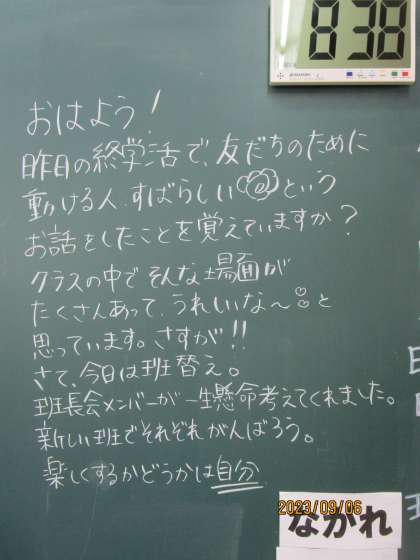 8:38
おはよう!
昨日の終学活で、友だちのために
動ける人、すばらしいという
お話をしたことを覚えていますか?
クラスの中でそんな場面が
たくさんあって、うれしいな〜と
思っています。さすが!!
さて、今日は班替え。
班長会メンバーが一生懸命考えてくれました。
新しい班でそれぞれがんばろう。
楽しくするかどうかは自分
2023/09/06
ながれ